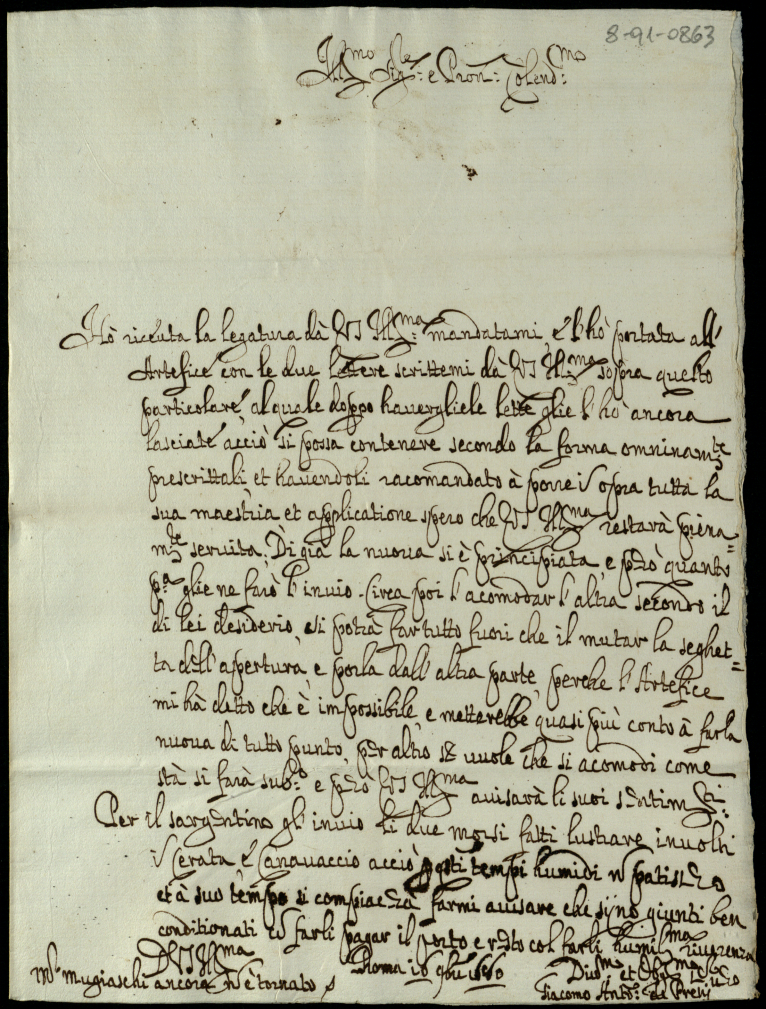 8-91-0863
Ill.mo Sig.re e Pron: Colend:mo
Hò riceuta la legatura dà VS Ill:ma mandatami, e l'hò portata all'
Artefice con le due lettere scrittemi dà VS Ill:ma sopra questo
particolare, al quale doppo hauergliele lette glie l'hò ancora
lasciate acciò si possa contenere secondo la forma omninam.te
prescrittali, et hauendoli racomandato à porre sopra tutta la
sua maestria et applicatione spero che VS Ill:ma restarà piena=
m.te seruita. Di già la nuoua si è principiata, e però quanto
p.a glie ne farò l'inuio. Circa poi l'acomodar l'altra secondo il
di lei desiderio, si potrà far tutto fuori che il mutar la seghet=
ta dell'apertura, e porla dall'altra parte, perche l'Artefice
mi hà detto che è impossibile, e metterebbe quasi più conto à farla
nuoua di tutto punto, per altro se uuole che si acomodi come
stà si farà sub.o e però VS Ill:ma auisarà li suoi sentim.ti:
Per il sargentino gl'inuio li due morsi fatti lustrare inuolti
i cerata e Canauaccio acciò tempi humidi n patis
et à suo tempo si compiacerà farmi auisare che sijno giunti ben
conditionati farli pagar il porto e resto col farli humil:ma riuerenza
D VS Ill:ma Roma 9bre 1680 Diu:mo et Obg:mo
mugiaschi ancora n è tornato Giacomo Ant.o: de Preti